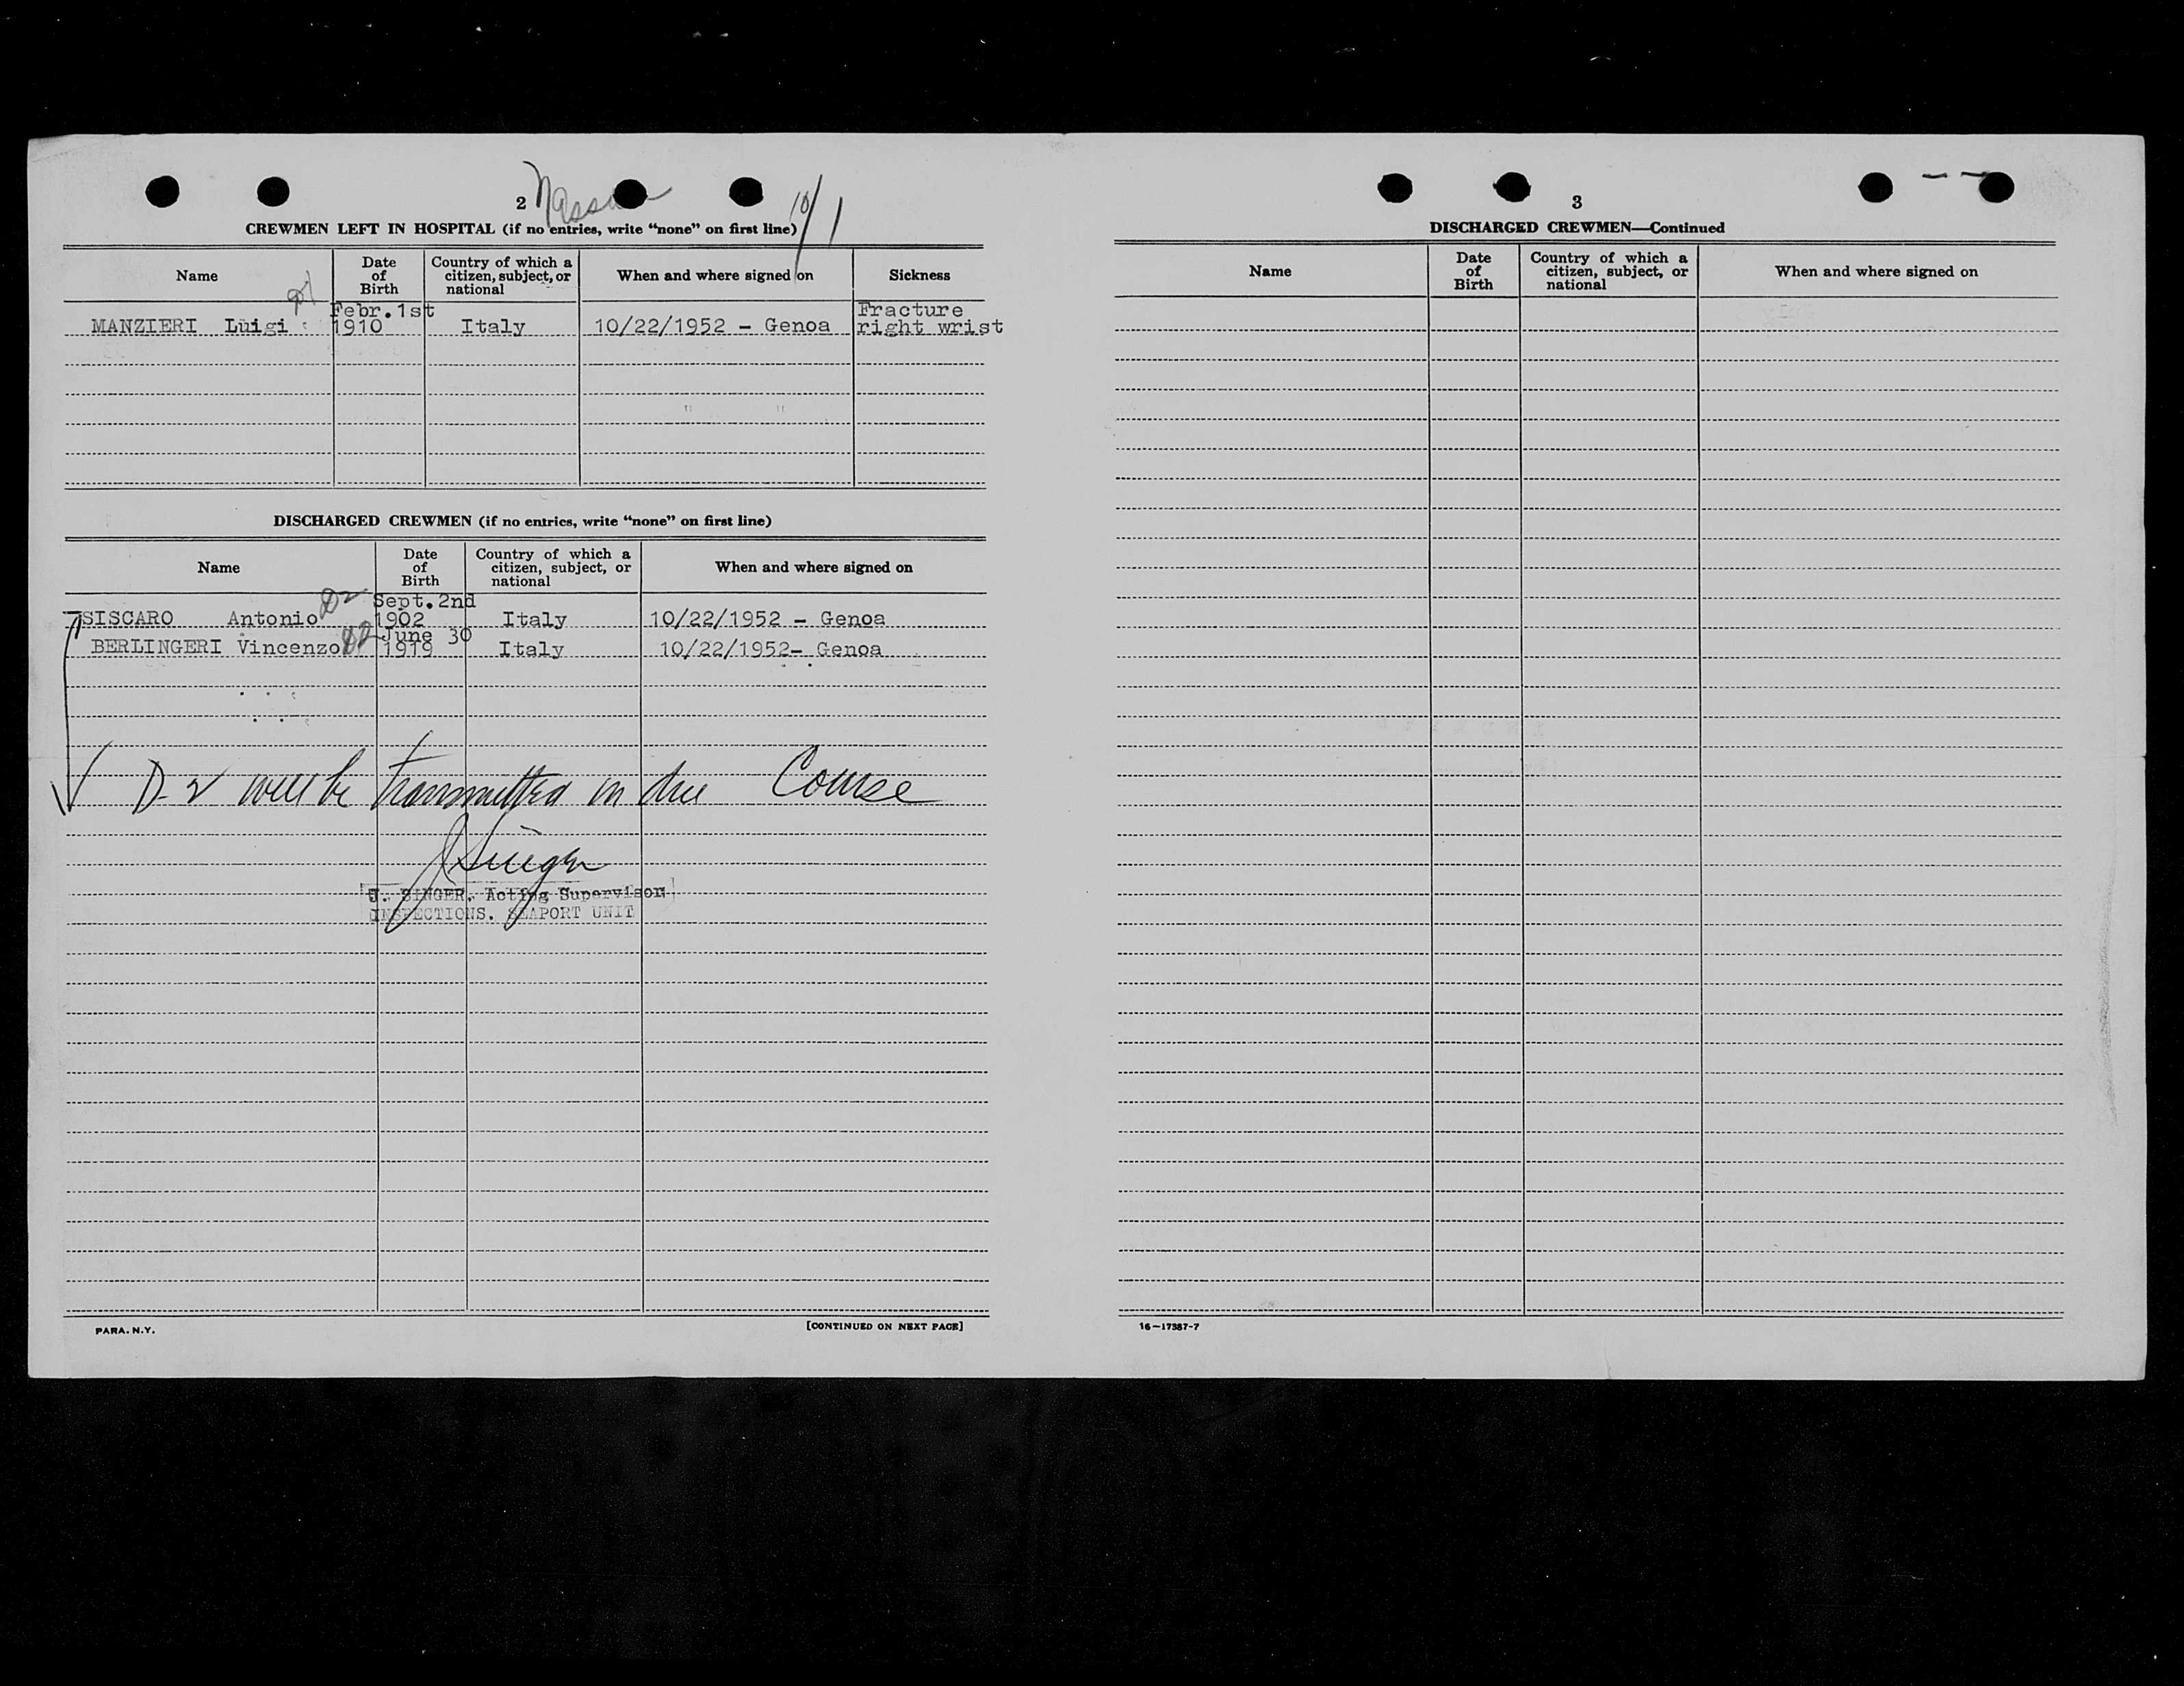 2
10/1
CREWMEN LEFT IN HOSPITAL (if no entries, write “none” on first line)
Name
Date of Birth
Country of which a citizen, subject, or national
When and where signed on
Sickness
MANZIERI Luigi Febr. 1st 1910 Italy 10/22/1952 - Genoa Fracture right wrist
DISCHARGED CREWMEN (if no entries, write “none” on first line)
Name
Date of Birth
Country of which a citizen, subject, or national
When and where signed on
SISCARO Antonio D2 Sept. 2nd 1902 Italy 10/22/1952 - Genoa
BERLINGERI Vincenzo D2 June 30 1919 Italy 10/22/1952- Genoa
D-2 will be transmitted in due Course
J Singer
J. SINGER, Acting Supervisor
INSPECTIONS. SEAPORT UNIT
PARA. N.Y.
[CONTINUED ON NEXT PAGE]
3
DISCHARGED CREWMEN—Continued
Name
Date of Birth
Country of which a citizen, subject, or national
When and where signed on
16—17387-7